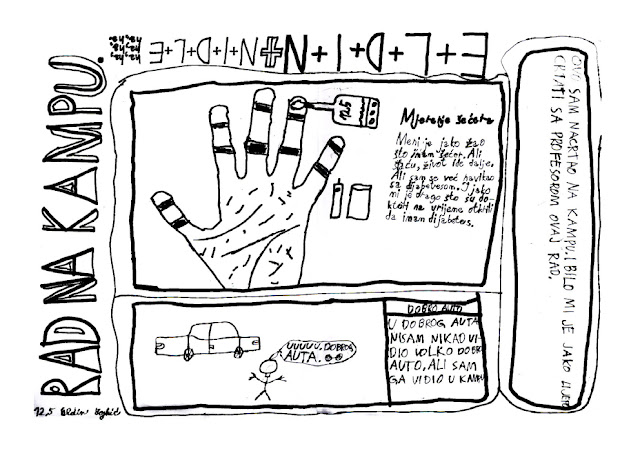 RAD NA KAMPU.
E+L+D+I+N+N+I+D+L+E
12,5
Mjerenje šećera
Meni je jako žao
što imam šećer. Ali
šta ću, život ide dalje.
Ali sam se već navikao
sa dijabetesom. I jako
mi je drago što su do-
ktori na vrijeme otkrili
da imam dijabetes.
UUUUU, DOBROG
AUTA.
DOBRO AUTO
U DOBROG AUTA
NISAM NIKAD VI-
DIO VOLKO DOBRO
AUTO, ALI SAM
GA VIDIO U KAMPU
OVO SAM NACRTAO NA KAMPU. I BILO MI JE JAKO LIJEPO
CRTATI SA PROFESOROM OVAJ RAD.
12,5 Eldin